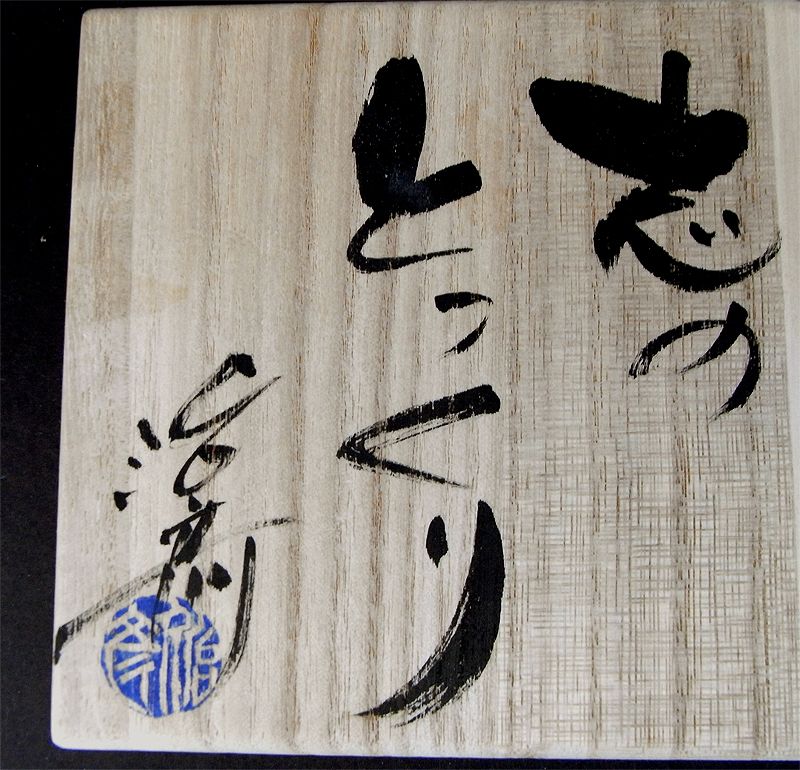 志の
とっくり